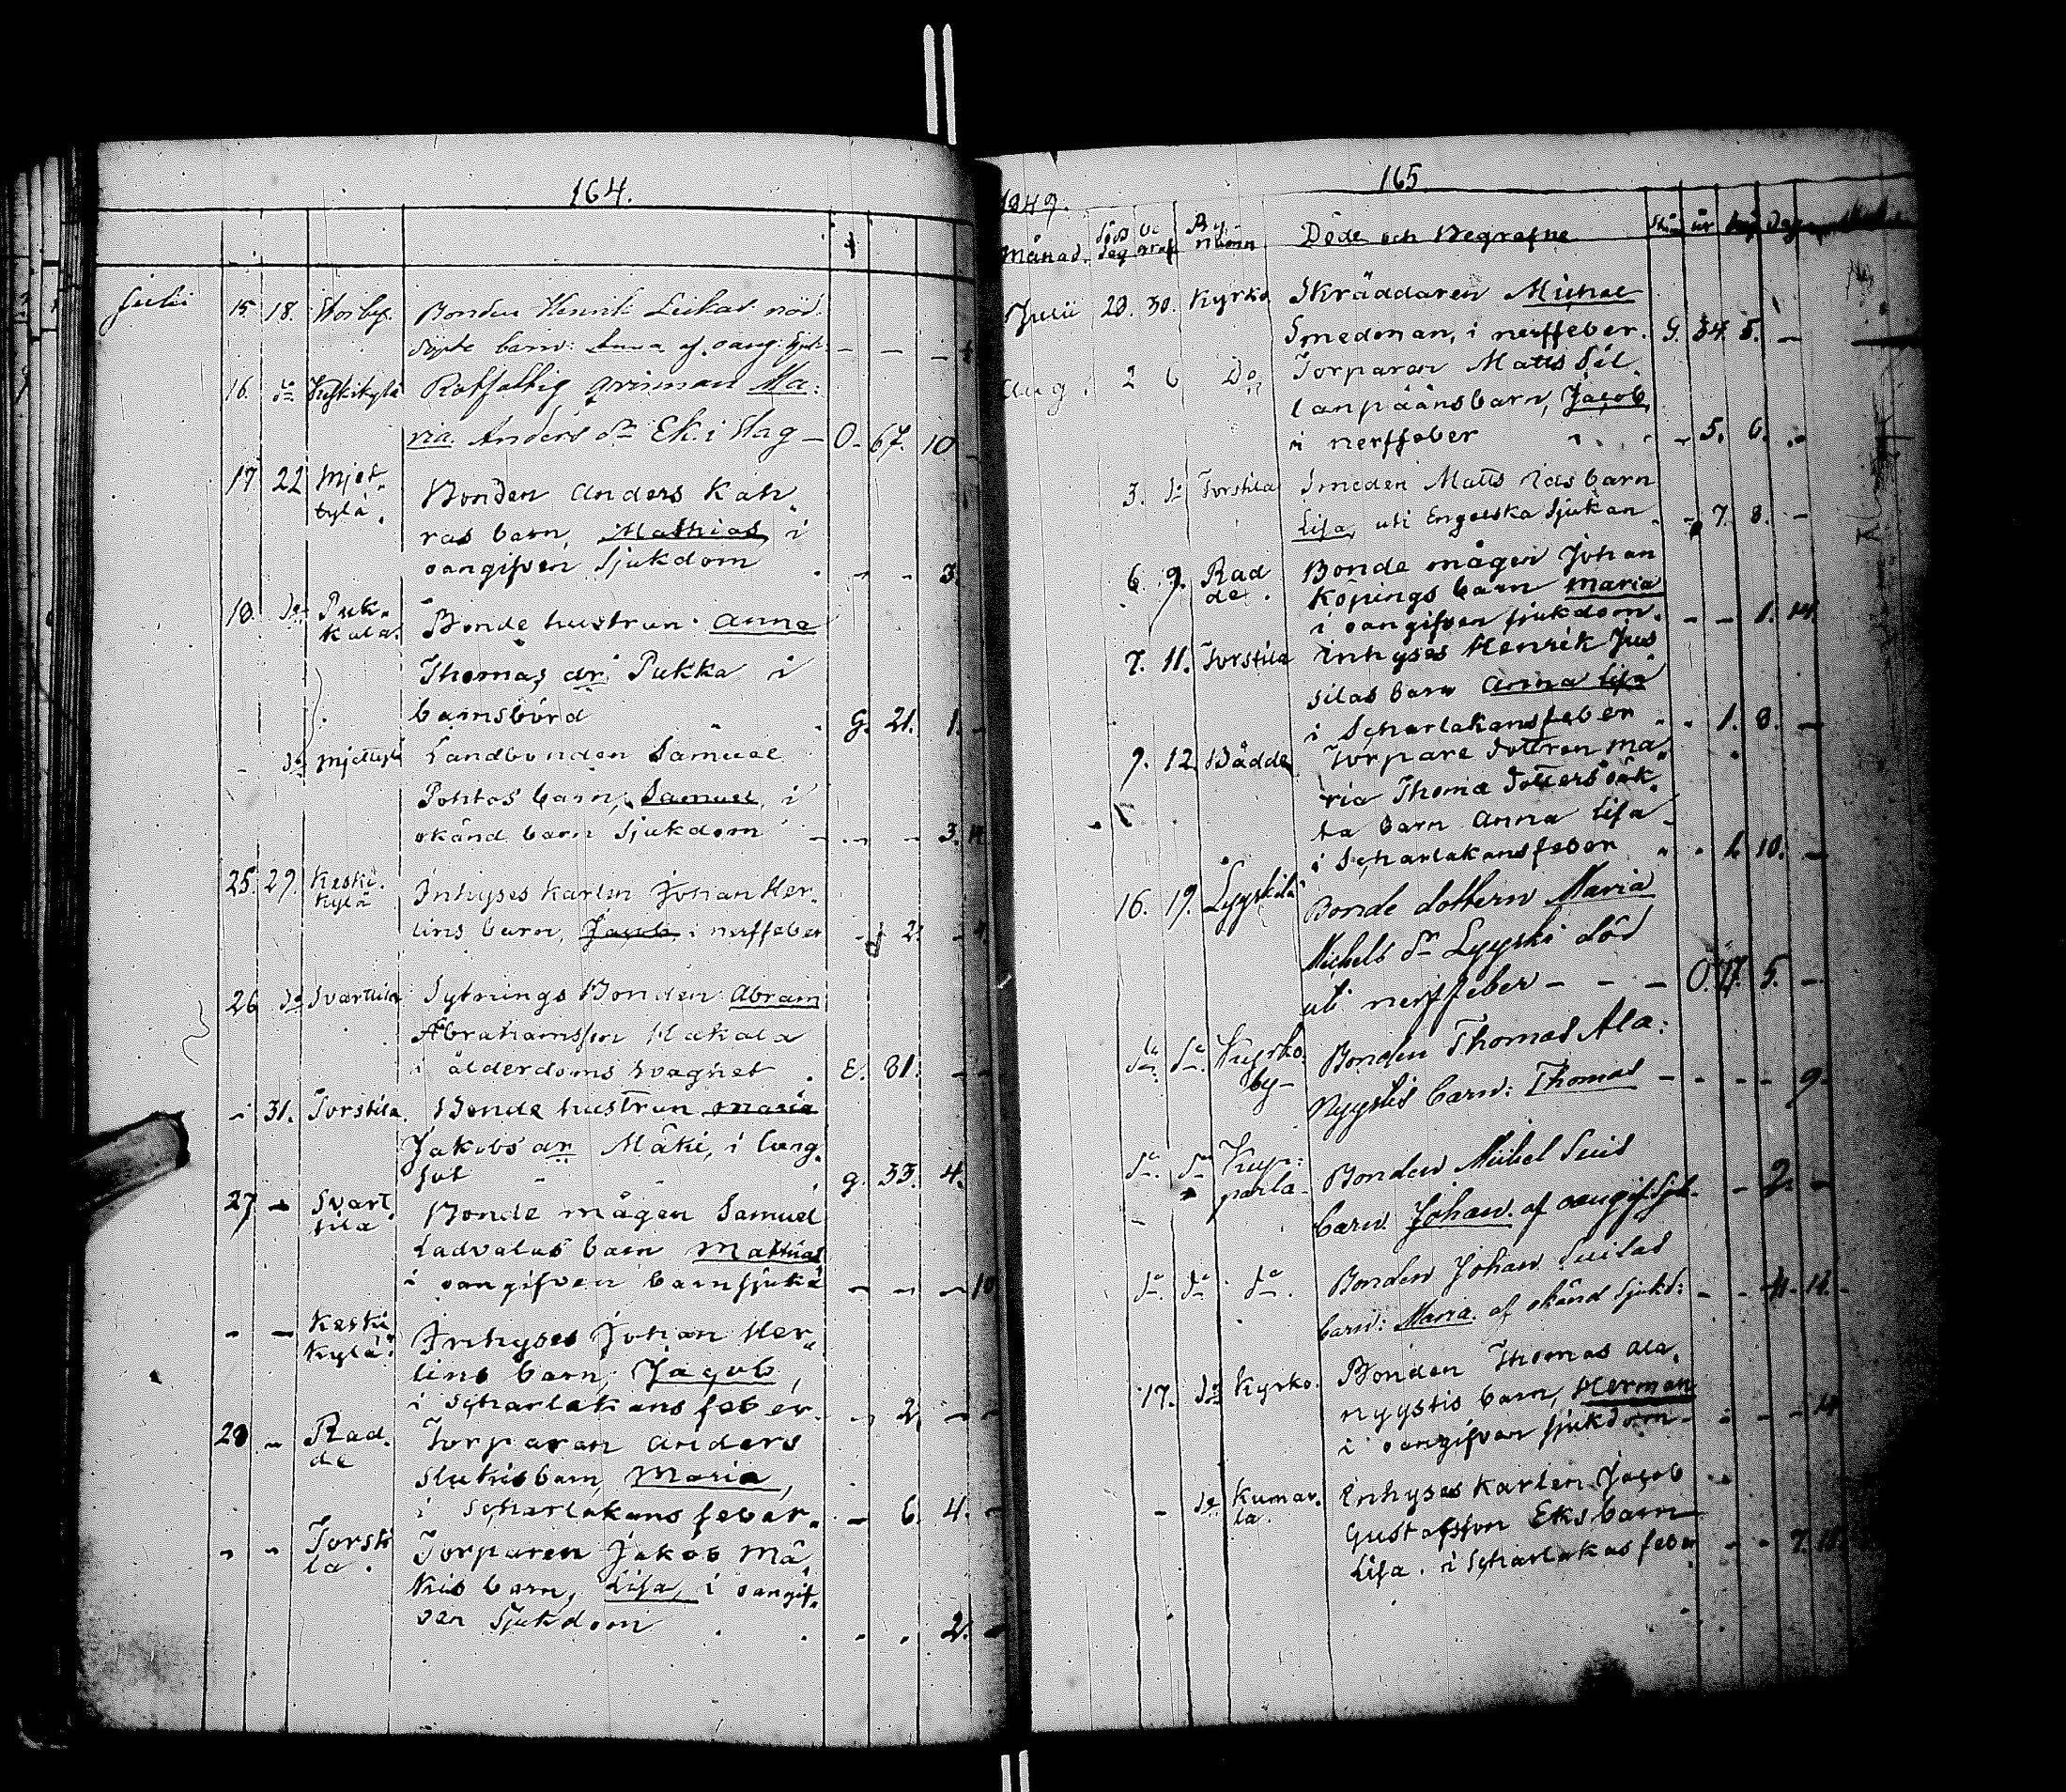 164.
Julii 15. 18. Storby. Bonden Henrik Leikas nöd-
döpte barn: Anna af oang: sjuk: — — —
16. do Keskikylä Rotfattig qvinnan Ma:
ria. Anders dr Ek. i Slag — O. 67. 10. —
17 22 Mjet-
tylä. Bonden Anders Kah
ras barn, Mathias, i
oangifven sjukdom . — - 3.
18. do Puk-
kala. Bonde hustrun Anna
Thomas ar Pukka i
barnsbörd G. 21. 1. —
- do Mjettylä Landbonden Samuel
Pohtos barn, Samuel, i
okänd barn sjukdom — — - 3.
25. 29. Keski-
kylä Inhyses karlen Johan Her-
lins barn, Jacob, i nerffeber - 2. -
26 do Svarttila Sytnings Bonden Abram
Abrahamsson Hakala
i ålderdoms svaghet . E. 81. — —
- 31. Torstila. Bonde hustrun Maria
Jakobs ar Mäki, i lung-
sot g. 33. 4.
27 - Svart
tila Bonde mågen Samuel
Ladvalas barn Mathias
i oangifven barnsjuk — — — 10
- — Keski
kylä. Inhyses Johan Her-
lins barn, Jacob,
i Scharlakans feber. - 2. — —
28 - Rad-
de Torparen Anders
Slukis barn, Maria,
i Scharlakans feber. — 6. 4. —
- - Torsti
la. Torparen Jakob Mä
kis barn, Lisa, i oangif-
ven Sjukdom . . . . 2. —
165
1849.
Månad. död dag be graf By. namn Döde och Begrafne år Dag
Julii 28. 30. Kyrko Skräddaren Michel
Smedman, i nerffeber. G. 34. 5. —
Aug. 2 6 Do Torparen Matts Sil
lanpääns barn, Jacob,
i nerffeber — 5. 6. —
3. do Torstila Smeden Matts barn
Lisa, uti Engelska Sjukan - 7. 8. —
6. 9. Rad
de. Bonde mågen Johan
Köpings barn Maria
i oangifven sjukdom. — — 1. 14.
7. 11. Torstila Inhyses Henrik Jus
silas barn Anna Lisa
i Scharlakansfeber . . 1. 8. —
9. 12 Bådde Torpare dottren Ma
ria Thomæ dotters oäk-
ta barn Anna Lisa
i Scharlakansfeber . . 1. 10. —
16. 19. Lyyskilä Bonde dottern Maria
Michels dr Lyyski död
uti nerffeber — — — O. 17. 5. —
do do Kyrko-
by- Bonden Thomas Ala:
Nyystis barn: Thomas — - - - 9.
do do Kup:
parla- Bonden Michel Suis
barn Johan. af oangif. Sjuk. — 2. —
do do do Bonden Johan Suilas
barn: Maria. af okänd sjukd: — - 4. 12. -
17. do Kyrko. Bonden Thomas Ala,
nyystis barn, Herman
i oangifven sjukdom. — — — 14
- do Kumar-
la. Inhyses karlen Jacob
Gustafsson Eks barn
Lisa. i Scharlakas feber — - 7.